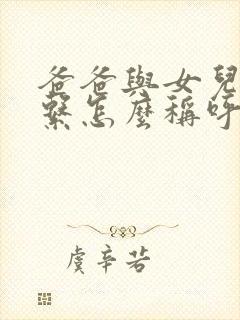 爸爸與女兒
繫怎麼稱呼
虞辛若